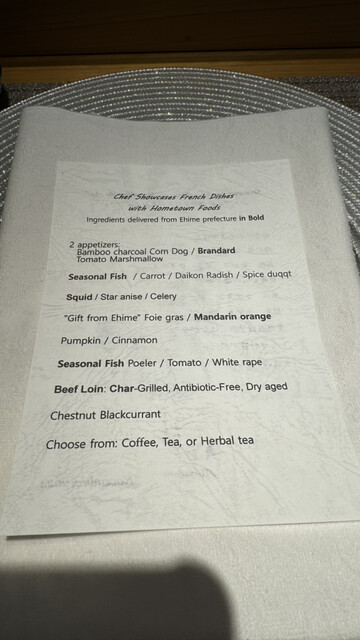 Chef Showcases French Dishes
with Hometown Foods
Ingredients delivered from Ehime prefecture in Bold
2 appetizers:
Bamboo charcoal Corn Dog / Brandard
Tomato Marshmallow
Seasonal Fish / Carrot / Daikon Radish / Spice duqqt
Squid / Star anise / Celery
"Gift from Ehime" Foie gras / Mandarin orange
Pumpkin / Cinnamon
Seasonal Fish Poeler / Tomato / White rape
Beef Loin: Char-Grilled, Antibiotic-Free, Dry aged
Chestnut Blackcurrant
Choose from: Coffee, Tea, or Herbal tea